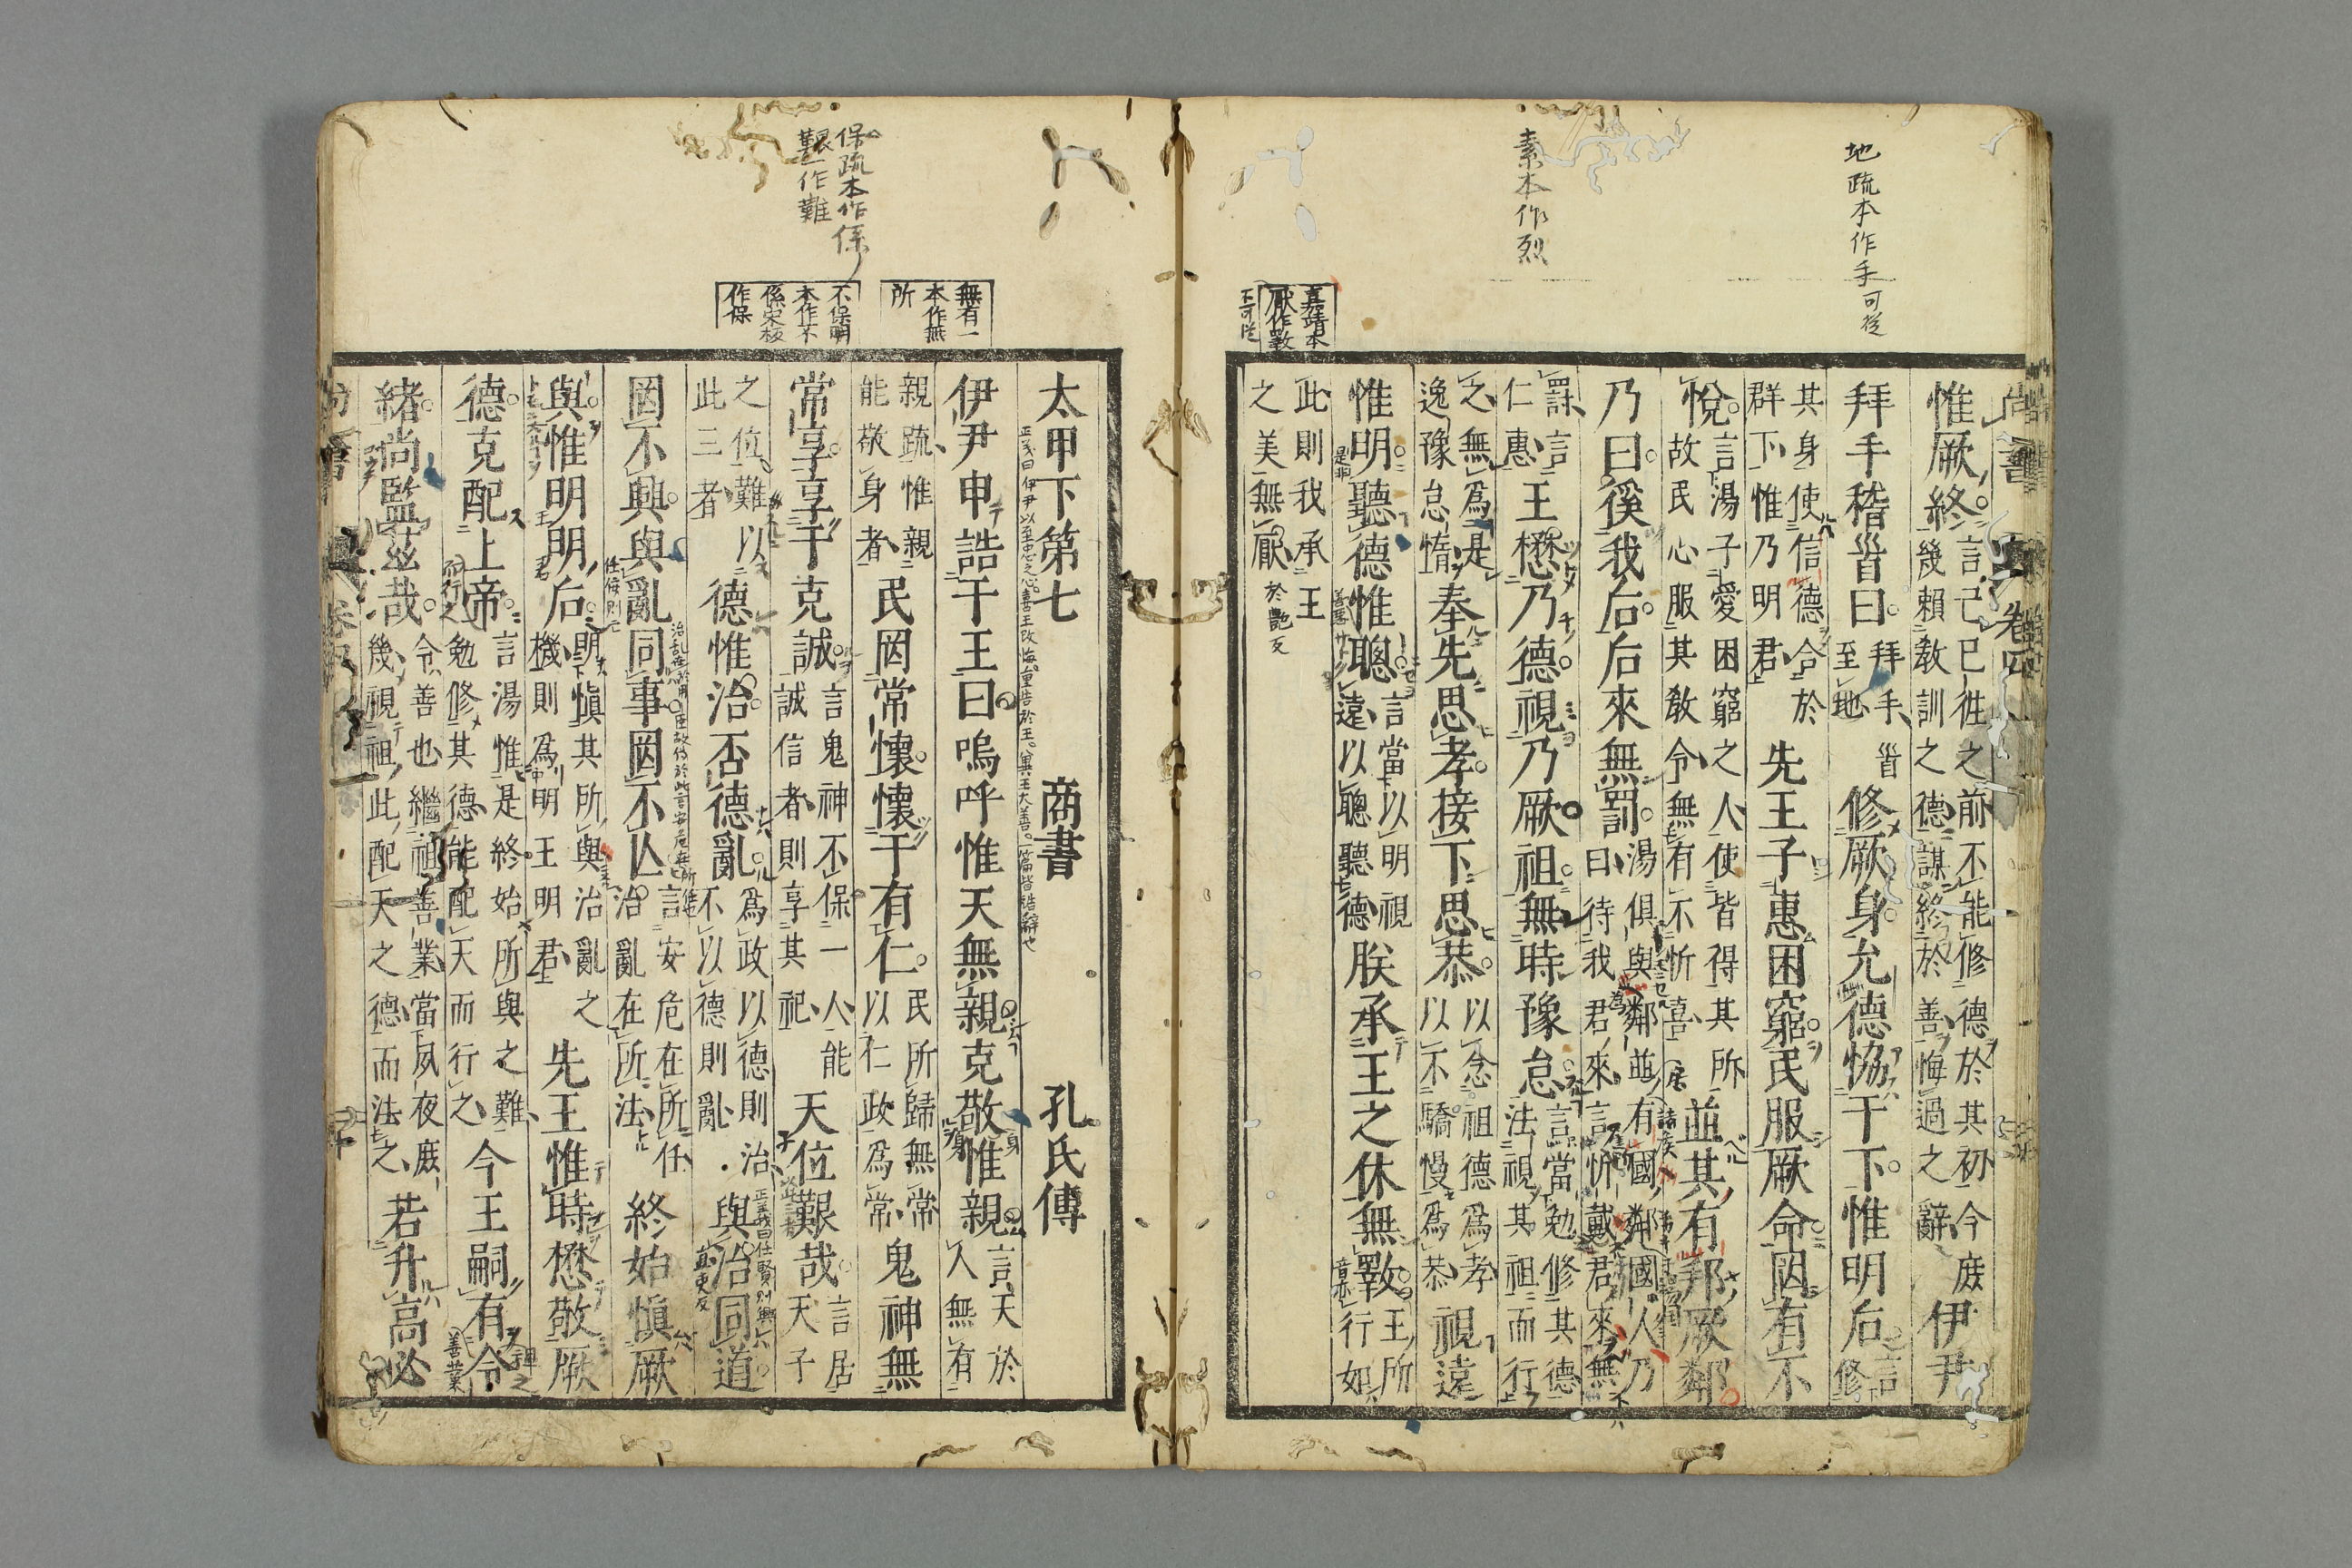 地疏本作手可從
素本作烈
嘉靖本
厭作斁
不可從
尚書 卷四
惟厥終言已已徃之前不能修德於其初今庶幾賴敎訓之德謀終於善悔過之辭伊尹
拜手稽𩠐曰拜手𩠐至地修厥身允德恊于下惟明后言修
其身使信德合於群下惟乃明君先王子惠困窮民服厥命罔有不
悅言湯子愛困窮之人使皆得其所故民心服其敎令無有不忻喜並其有邦厥鄰
乃曰徯我后后來無罰湯俱與鄰並有國鄰國人乃曰待我君來言忻戴君來無
罸言仁惠王懋乃德視乃厥祖無時豫怠言當勉修其德法視其祖而行
之無爲是逸豫怠惰奉先思孝接下思恭以念祖德爲孝以不驕慢爲恭視遠
惟明聽德惟聰言當以明視遠以聰聽德朕承王之休無斁王所行如
此則我承王之美無厭於艶反
保疏本作係
艱一作難
無有一
本作無
所
不保明
本作不
係宋板
作保
太甲下第七 商書 孔氏傳
正義曰伊尹以至忠之心喜王改悔重告於王兾王大善一篇皆誥辭也
伊尹申誥于王曰嗚呼惟天無親克敬惟親言天於人無有
親疏惟親能敬身者民罔常懷懷于有仁民所歸無常以仁政爲常鬼神無
常享享于克誠言鬼神不保一人能誠信者則享其祀天位艱哉言居天子
之位難以此三者德惟治否德亂爲政以德則治不以德則亂與治同道
罔不興與亂同事罔不亾言安危在所任治亂在所法終始愼厥
與惟明明后明愼其所與治亂之機則爲明王明君先王惟時懋敬厥
德克配上帝言湯惟是終始所與之難勉修其德能配天而行之今王嗣有令
緒尚監茲哉令善也繼祖善業當夙夜庶幾視祖此配天之德而法之若升高必